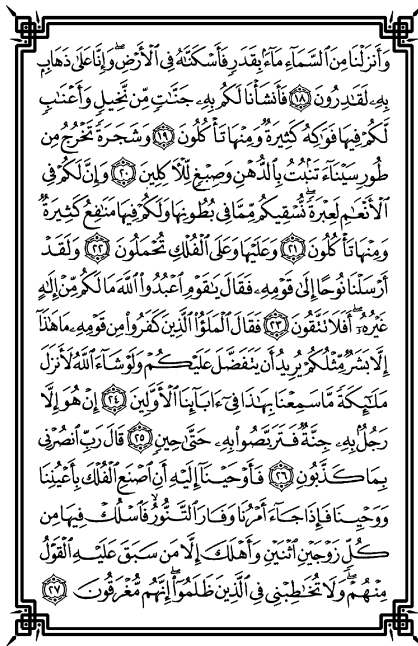 وَأَنزَلْنَا مِنَ السَّمَآءِ مَآءًۢ بِقَدَرٍ فَأَسْكَنَّٰهُ فِى الْأَرْضِ ۖ وَإِنَّا عَلَىٰ ذَهَابٍۭ
بِهِۦ لَقَٰدِرُونَ ١٨ فَأَنشَأْنَا لَكُم بِهِۦ جَنَّٰتٍ مِّن نَّخِيلٍ وَأَعْنَٰبٍ
لَّكُمْ فِيهَا فَوَٰكِهُ كَثِيرَةٌ وَمِنْهَا تَأْكُلُونَ ١٩ وَشَجَرَةً تَخْرُجُ مِن
طُورِ سَيْنَآءَ تَنۢبُتُ بِالدُّهْنِ وَصِبْغٍ لِّلْءَاكِلِينَ ٢٠ وَإِنَّ لَكُمْ فِى
الْأَنْعَٰمِ لَعِبْرَةً ۖ نُّسْقِيكُم مِّمَّا فِى بُطُونِهَا وَلَكُمْ فِيهَا مَنَٰفِعُ كَثِيرَةٌ
وَمِنْهَا تَأْكُلُونَ ٢١ وَعَلَيْهَا وَعَلَى الْفُلْكِ تُحْمَلُونَ ٢٢ وَلَقَدْ
أَرْسَلْنَا نُوحًا إِلَىٰ قَوْمِهِۦ فَقَالَ يَٰقَوْمِ اعْبُدُوا۟ اللَّهَ مَا لَكُم مِّنْ إِلَٰهٍ
غَيْرُهُۥٓ ۖ أَفَلَا تَتَّقُونَ ٢٣ فَقَالَ الْمَلَؤُا۟ الَّذِينَ كَفَرُوا۟ مِن قَوْمِهِۦ مَا هَٰذَآ
إِلَّا بَشَرٌ مِّثْلُكُمْ يُرِيدُ أَن يَتَفَضَّلَ عَلَيْكُمْ وَلَوْ شَآءَ اللَّهُ لَأَنزَلَ
مَلَٰٓئِكَةً مَّا سَمِعْنَا بِهَٰذَا فِىٓ ءَابَآئِنَا الْأَوَّلِينَ ٢٤ إِنْ هُوَ إِلَّا
رَجُلٌۢ بِهِۦ جِنَّةٌ فَتَرَبَّصُوا۟ بِهِۦ حَتَّىٰ حِينٍ ٢٥ قَالَ رَبِّ انصُرْنِى
بِمَا كَذَّبُونِ ٢٦ فَأَوْحَيْنَآ إِلَيْهِ أَنِ اصْنَعِ الْفُلْكَ بِأَعْيُنِنَا
وَوَحْيِنَا فَإِذَا جَآءَ أَمْرُنَا وَفَارَ التَّنُّورُ ۙ فَاسْلُكْ فِيهَا مِن
كُلٍّ زَوْجَيْنِ اثْنَيْنِ وَأَهْلَكَ إِلَّا مَن سَبَقَ عَلَيْهِ الْقَوْلُ
مِنْهُمْ ۖ وَلَا تُخَٰطِبْنِى فِى الَّذِينَ ظَلَمُوٓا۟ ۖ إِنَّهُم مُّغْرَقُونَ ٢٧